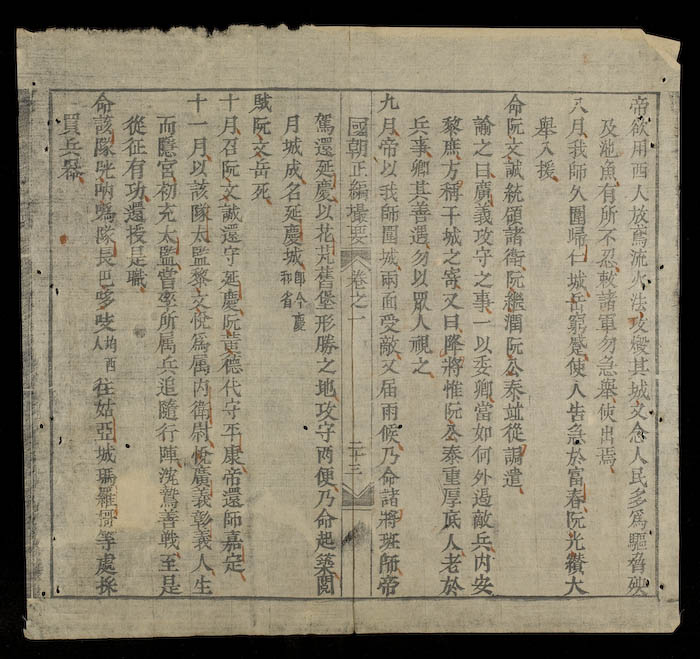 帝欲用西人放鳶流火法攻燬其城文念人民多爲驅脅殃
及池魚有所不忍敕諸軍勿急舉使出焉
八月我師久圍歸仁城岳窮蹙使人告急於富春阮光纘大
舉入援
命阮文誠統領諸衛阮繼潤阮公泰竝從調遣
諭之曰廣義攻守之事一以委卿當如何外遏敵兵内安
黎庶方稱干城之寄又曰降將惟阮公泰重厚底人老於
兵事卿其善遇勿以眾人視之
九月帝以我師圍城兩面受敵又届雨候乃命諸將班師帝
國朝正編撮要 卷之一 二十三
駕還延慶以花芃舊堡形勝之地攻守两便乃命起築閲
月城成名延慶城即今慶和省
賊阮文岳死
十月召阮文誠還守延慶阮黃德代守平康帝還師嘉定
十一月以該隊太監黎文悅爲属内衛尉悅廣義彰義人生
而隱宮初充太監嘗率所属兵追隨行陣沈鷙善戰至是
從征有功還授是職
命該隊㕵吶𠿁隊長巴哆吱均西人往姑亞城瑪羅𠹚等處採
買兵器